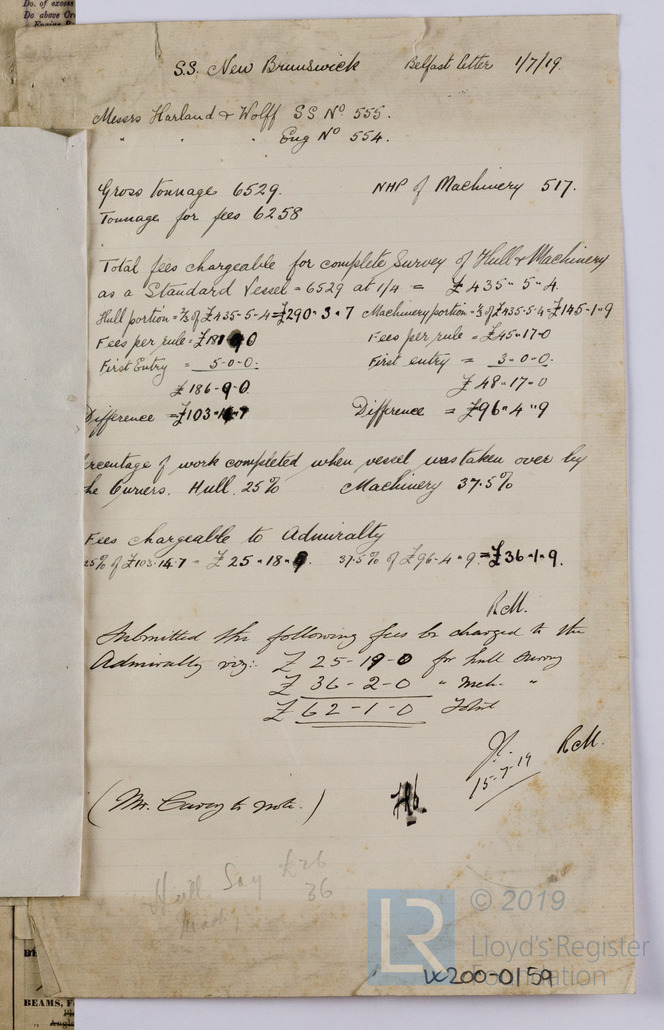 Do. of excess
Do above
S.S. New Brunswick Belfast letter 1/7/19
Messrs Harland & Wolff SS No 555.
" " " Eng No 554.
Gross tonnage 6529. NHP of Machinery 517.
Tonnage for fees 6258
Total fees chargeable for complete Survey of Hull & Machinery
as a Standard Vessel = 6529 at 1/4 = £435-5-4.
Hull portion = ⅔ of £435-5-4 = £290-3-7 Machinery portion = ⅓ of £435-5-4 = £145-1-9
Fees per rule = Fees per rule = £45-17-0
First Entry = 5-0-0. First entry = 3-0-0.
£186-9-0 £48-17-0
Difference = Difference = £96-4-9
rcentage of work completed when vessel was taken over by
he Owners. Hull 25% Machinery 37.5%
Fees chargeable to Admiralty
25% of £103-14-7 = £25-18- 37.5% of £96-4-9 = £36-1-9.
R.M.
Submitted the following fees be charged to the
Admiralty viz: £25-19-0 for hull survey
£36-2-0 " Mch. "
£62-1-0 Total
15-7-19 R.M.
(Mr. to note.)
Hull Say £26
36
© 2019
LR Lloyd's Register
Foundation
W200-0159
BEAMS, F